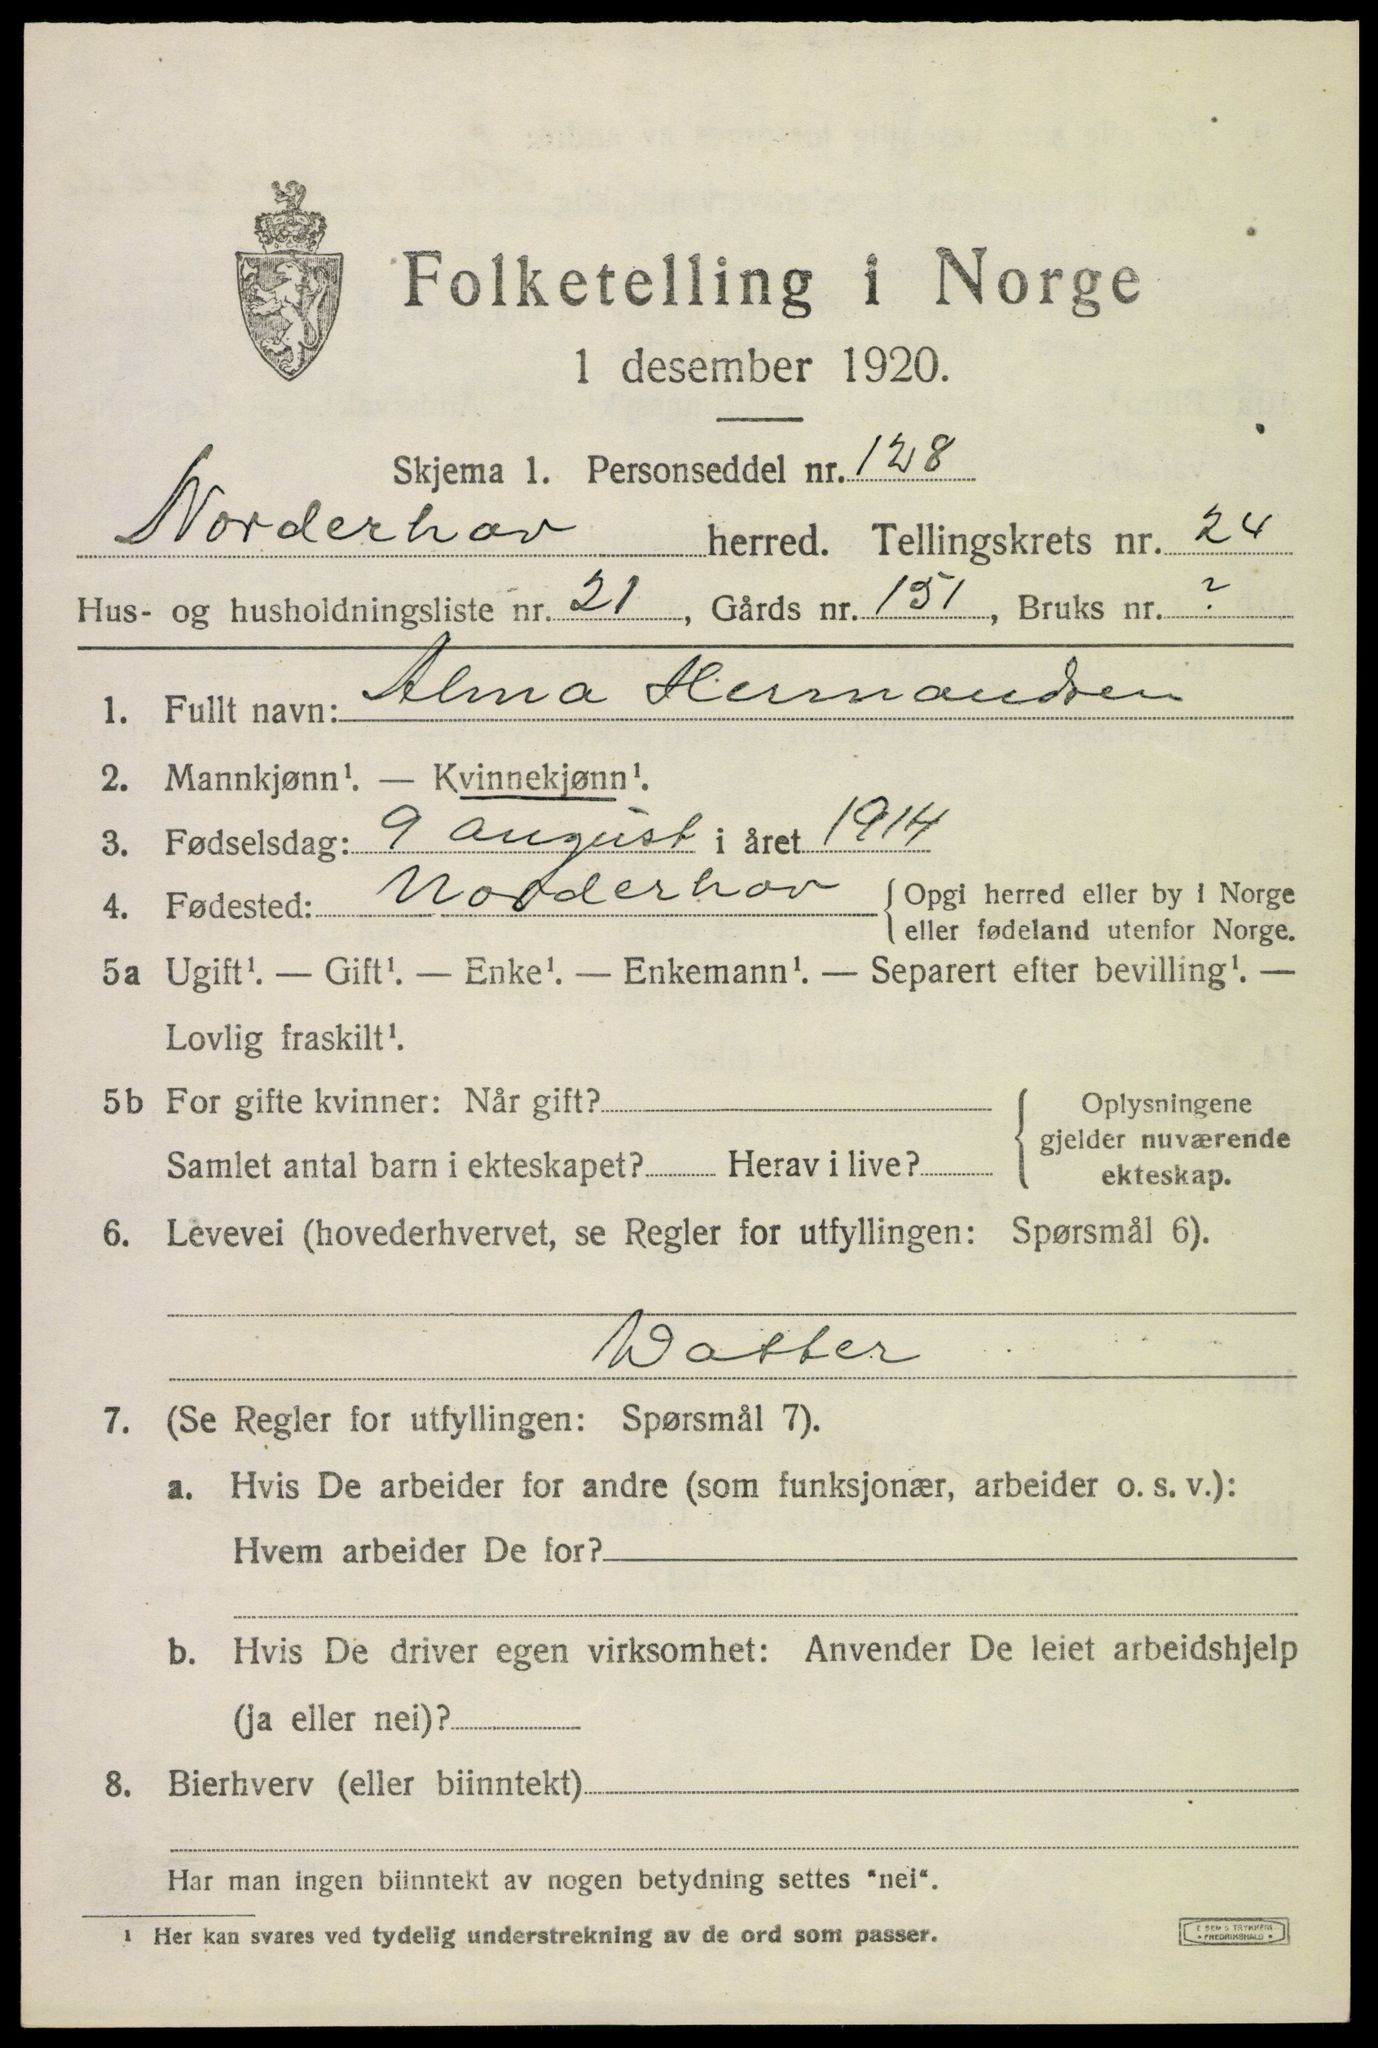 Folketelling i Norge
1 desember 1920.
Skjema 1. Personseddel nr. 128
Norderhov herred. Tellingskrets nr. 24
Hus- og husholdningsliste nr. 21, Gårds nr. 151, Bruks nr. ?
1. Fullt navn: Alma Hermandsen
2. Mannkjønn¹. — Kvinnekjønn¹.
3. Fødselsdag: 9 august i året 1914
4. Fødested: Norderhov { Opgi herred eller by i Norge
eller fødeland utenfor Norge.
5a Ugift¹. — Gift¹. — Enke¹. — Enkemann¹. — Separert efter bevilling¹. —
Lovlig fraskilt¹.
5b For gifte kvinner: Når gift?
Samlet antal barn i ekteskapet? Herav i live?
{ Oplysningene
gjelder nuværende
ekteskap.
6. Levevei (hovederhvervet, se Regler for utfyllingen: Spørsmål 6).
Datter
7. (Se Regler for utfyllingen: Spørsmål 7).
a. Hvis De arbeider for andre (som funksjonær, arbeider o. s. v.):
Hvem arbeider De for?
b. Hvis De driver egen virksomhet: Anvender De leiet arbeidshjelp
(ja eller nei)?
8. Bierhverv (eller biinntekt)
Har man ingen biinntekt av nogen betydning settes "nei".
¹ Her kan svares ved tydelig understrekning av de ord som passer.
E SEM S TRYKKERI
• FREDRIKSHALD •